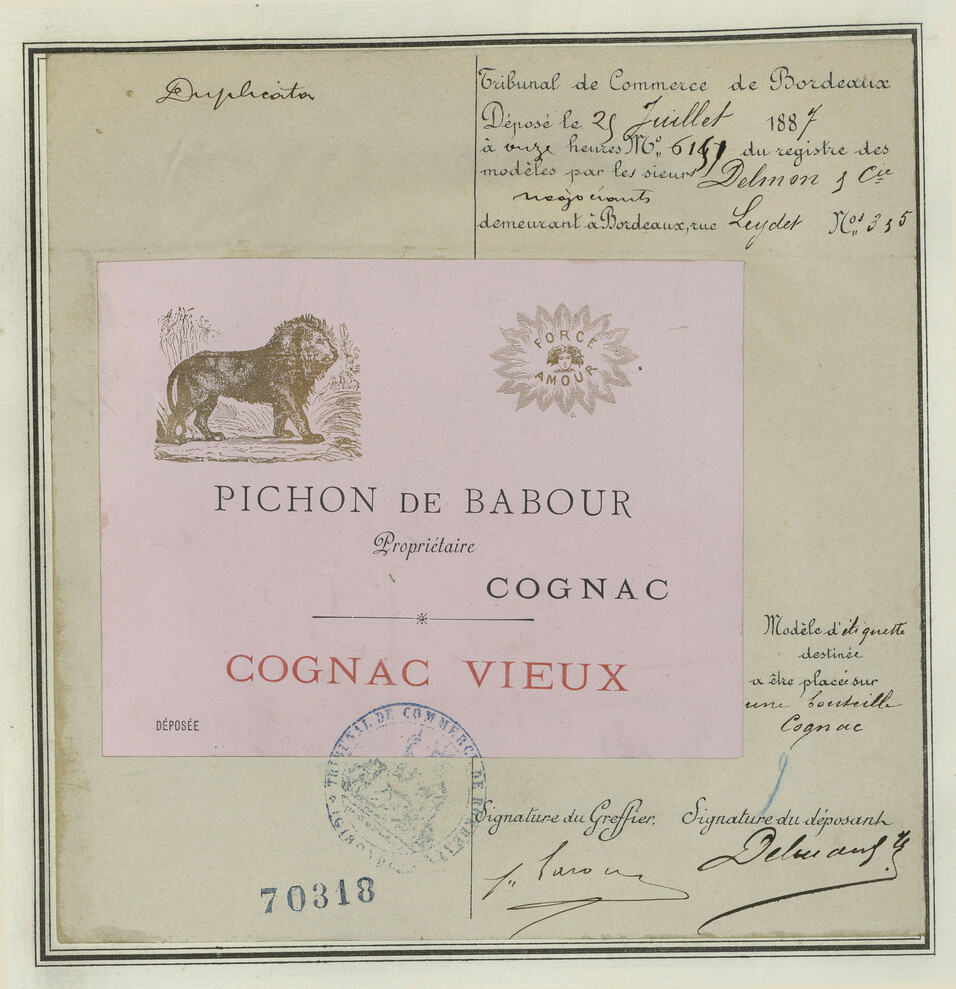 Duplicata
Tribunal de Commerce de Bordeaux
Déposé le 25 Juillet 1887
à onze heures Nº 6151 du registre des
modèles par les sieurs Delmon & Cie
négociants
demeurant à Bordeaux, rue Leydet Nos 3 & 5
FORCE
AMOUR
PICHON DE BABOUR
Propriétaire
COGNAC
COGNAC VIEUX
DÉPOSÉE
Modèle d'étiquette
destinée
a être placée sur
une bouteille
Cognac
TRIBUNAL DE COMMERCE DE BORDEAUX
Signature du Greffier. Signature du déposant
70318